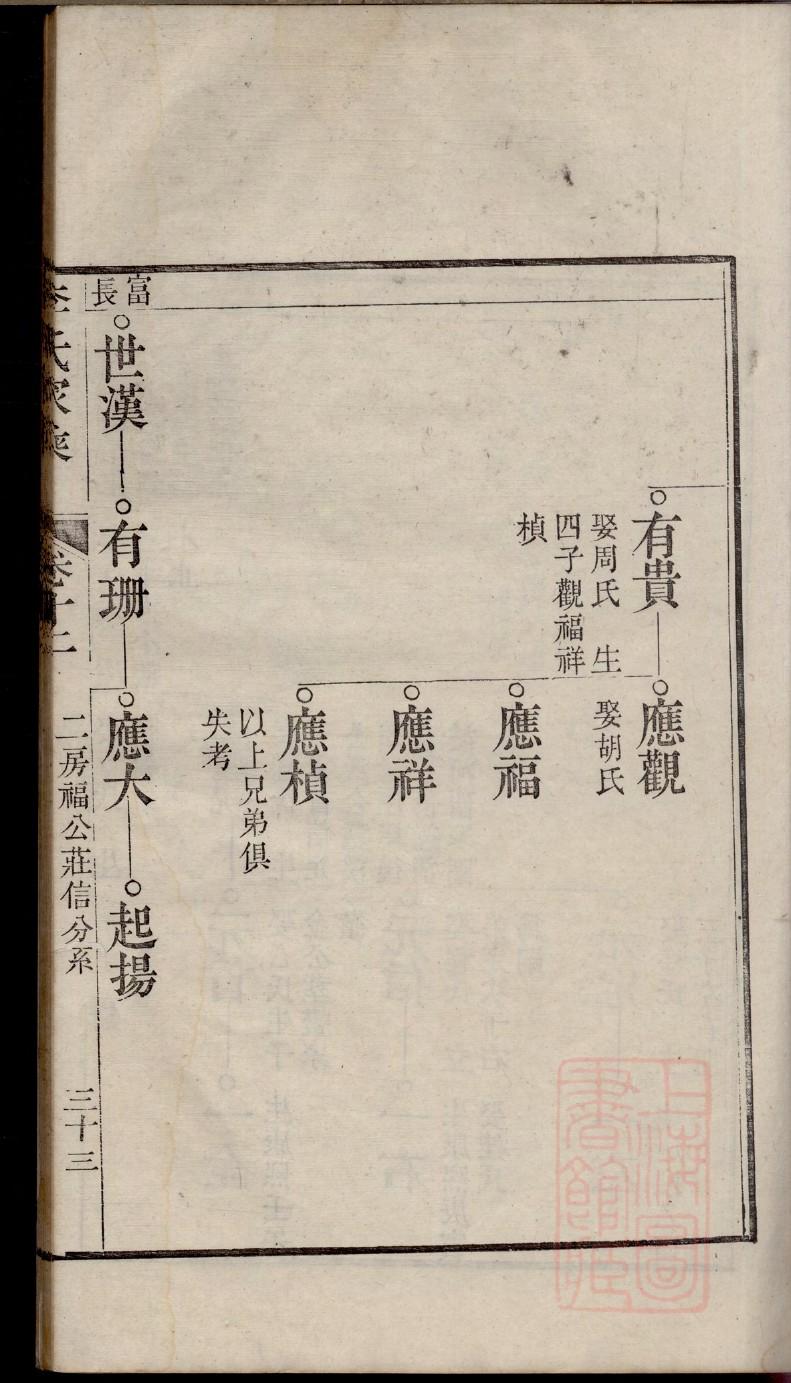 有貴
娶周氏 生
四子觀福祥
楨
應觀
娶胡氏
應福
應祥
應楨
以上兄弟俱
失考
富
長
世漢
有珊
應大
起揚
李氏家乘
卷十二
二房福公莊信分系
三十三
上海圖
書館藏